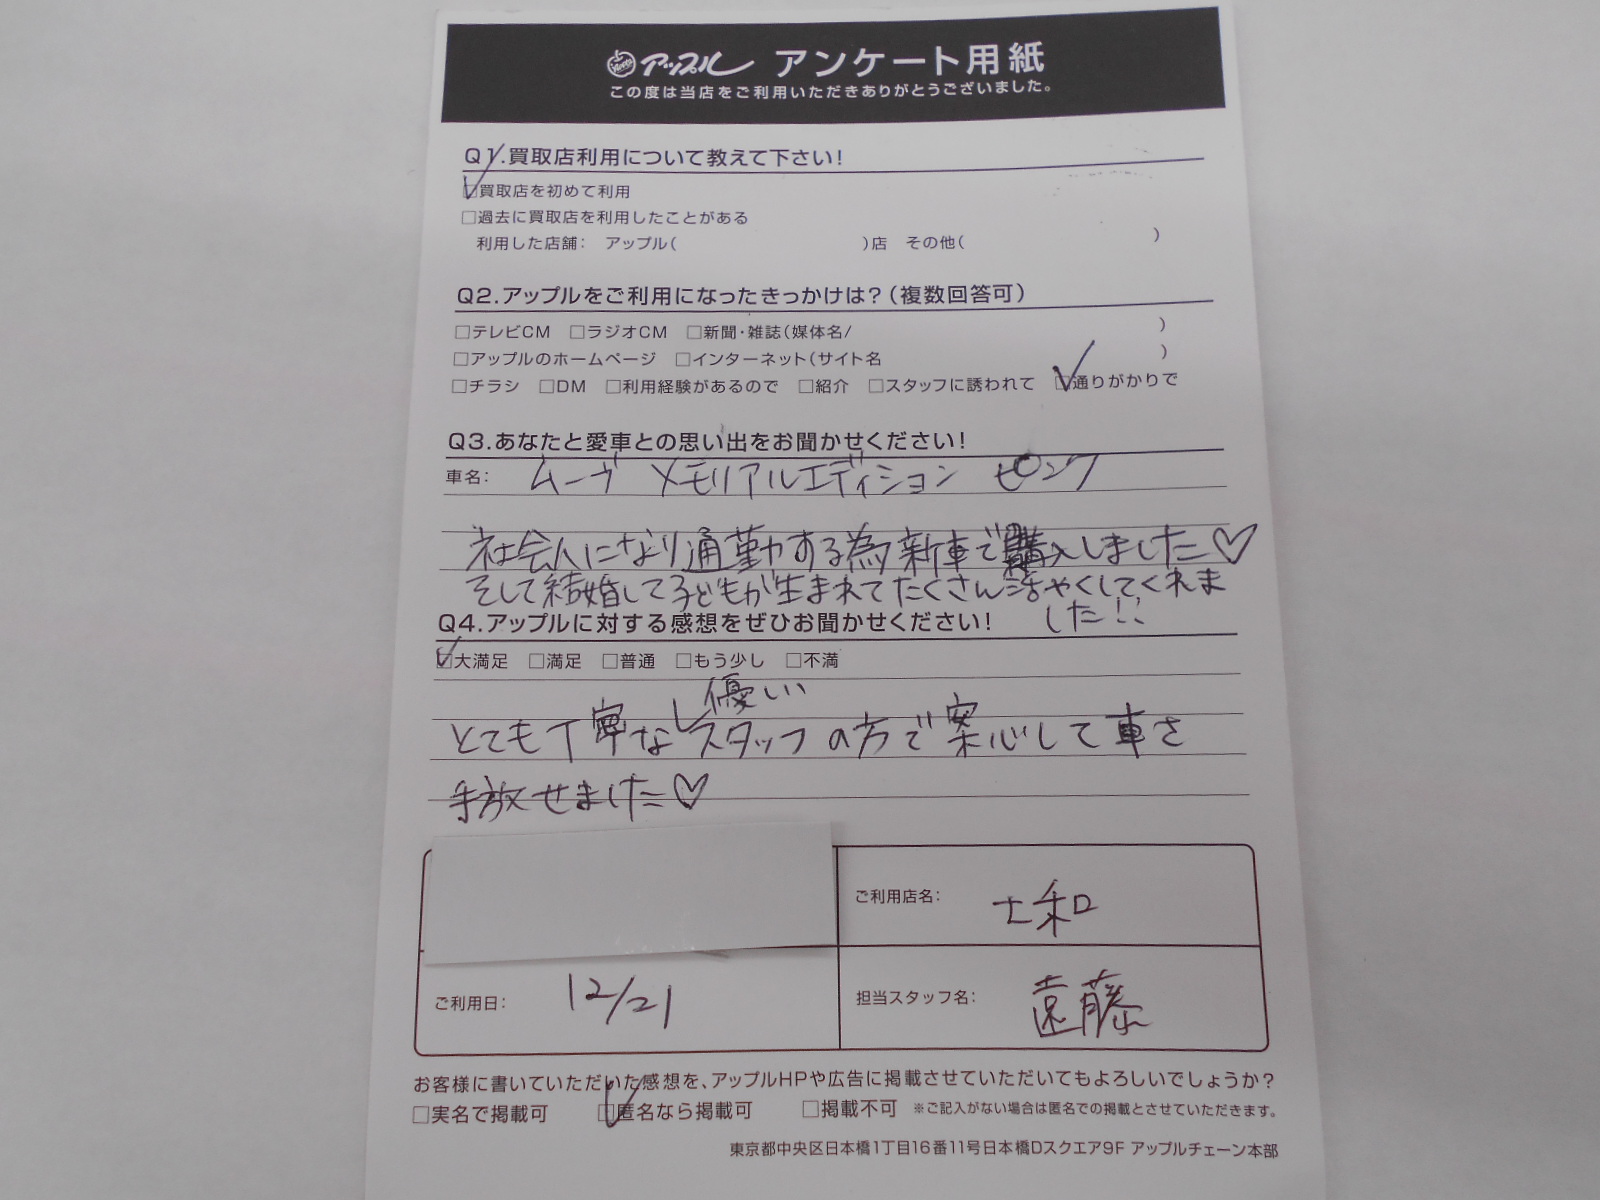 Apple アップル アンケート用紙
この度は当店をご利用いただきありがとうございました。
Q1.買取店利用について教えて下さい！
☑買取店を初めて利用
□過去に買取店を利用したことがある
利用した店舗： アップル( )店 その他( )
Q2.アップルをご利用になったきっかけは？(複数回答可)
□テレビCM □ラジオCM □新聞・雑誌(媒体名/ )
□アップルのホームページ □インターネット(サイト名 )
□チラシ □DM □利用経験があるので □紹介 □スタッフに誘われて ☑通りがかりで
Q3.あなたと愛車との思い出をお聞かせください！
車名： ムーヴ メモリアルエディション ピンク
社会人になり通勤する為新車で購入しました♡
そして結婚して子どもが生まれてたくさん活やくしてくれま
した!!
Q4.アップルに対する感想をぜひお聞かせください！
☑大満足 □満足 □普通 □もう少し □不満
優しい
とても丁寧なスタッフの方で安心して車を
手放せました♡
ご利用店名： 大和
ご利用日： 12/21
担当スタッフ名： 遠藤
お客様に書いていただいた感想を、アップルHPや広告に掲載させていただいてもよろしいでしょうか？
□実名で掲載可 ☑匿名なら掲載可 □掲載不可 ※ご記入がない場合は匿名での掲載とさせていただきます。
東京都中央区日本橋1丁目16番11号日本橋Dスクエア9F アップルチェーン本部